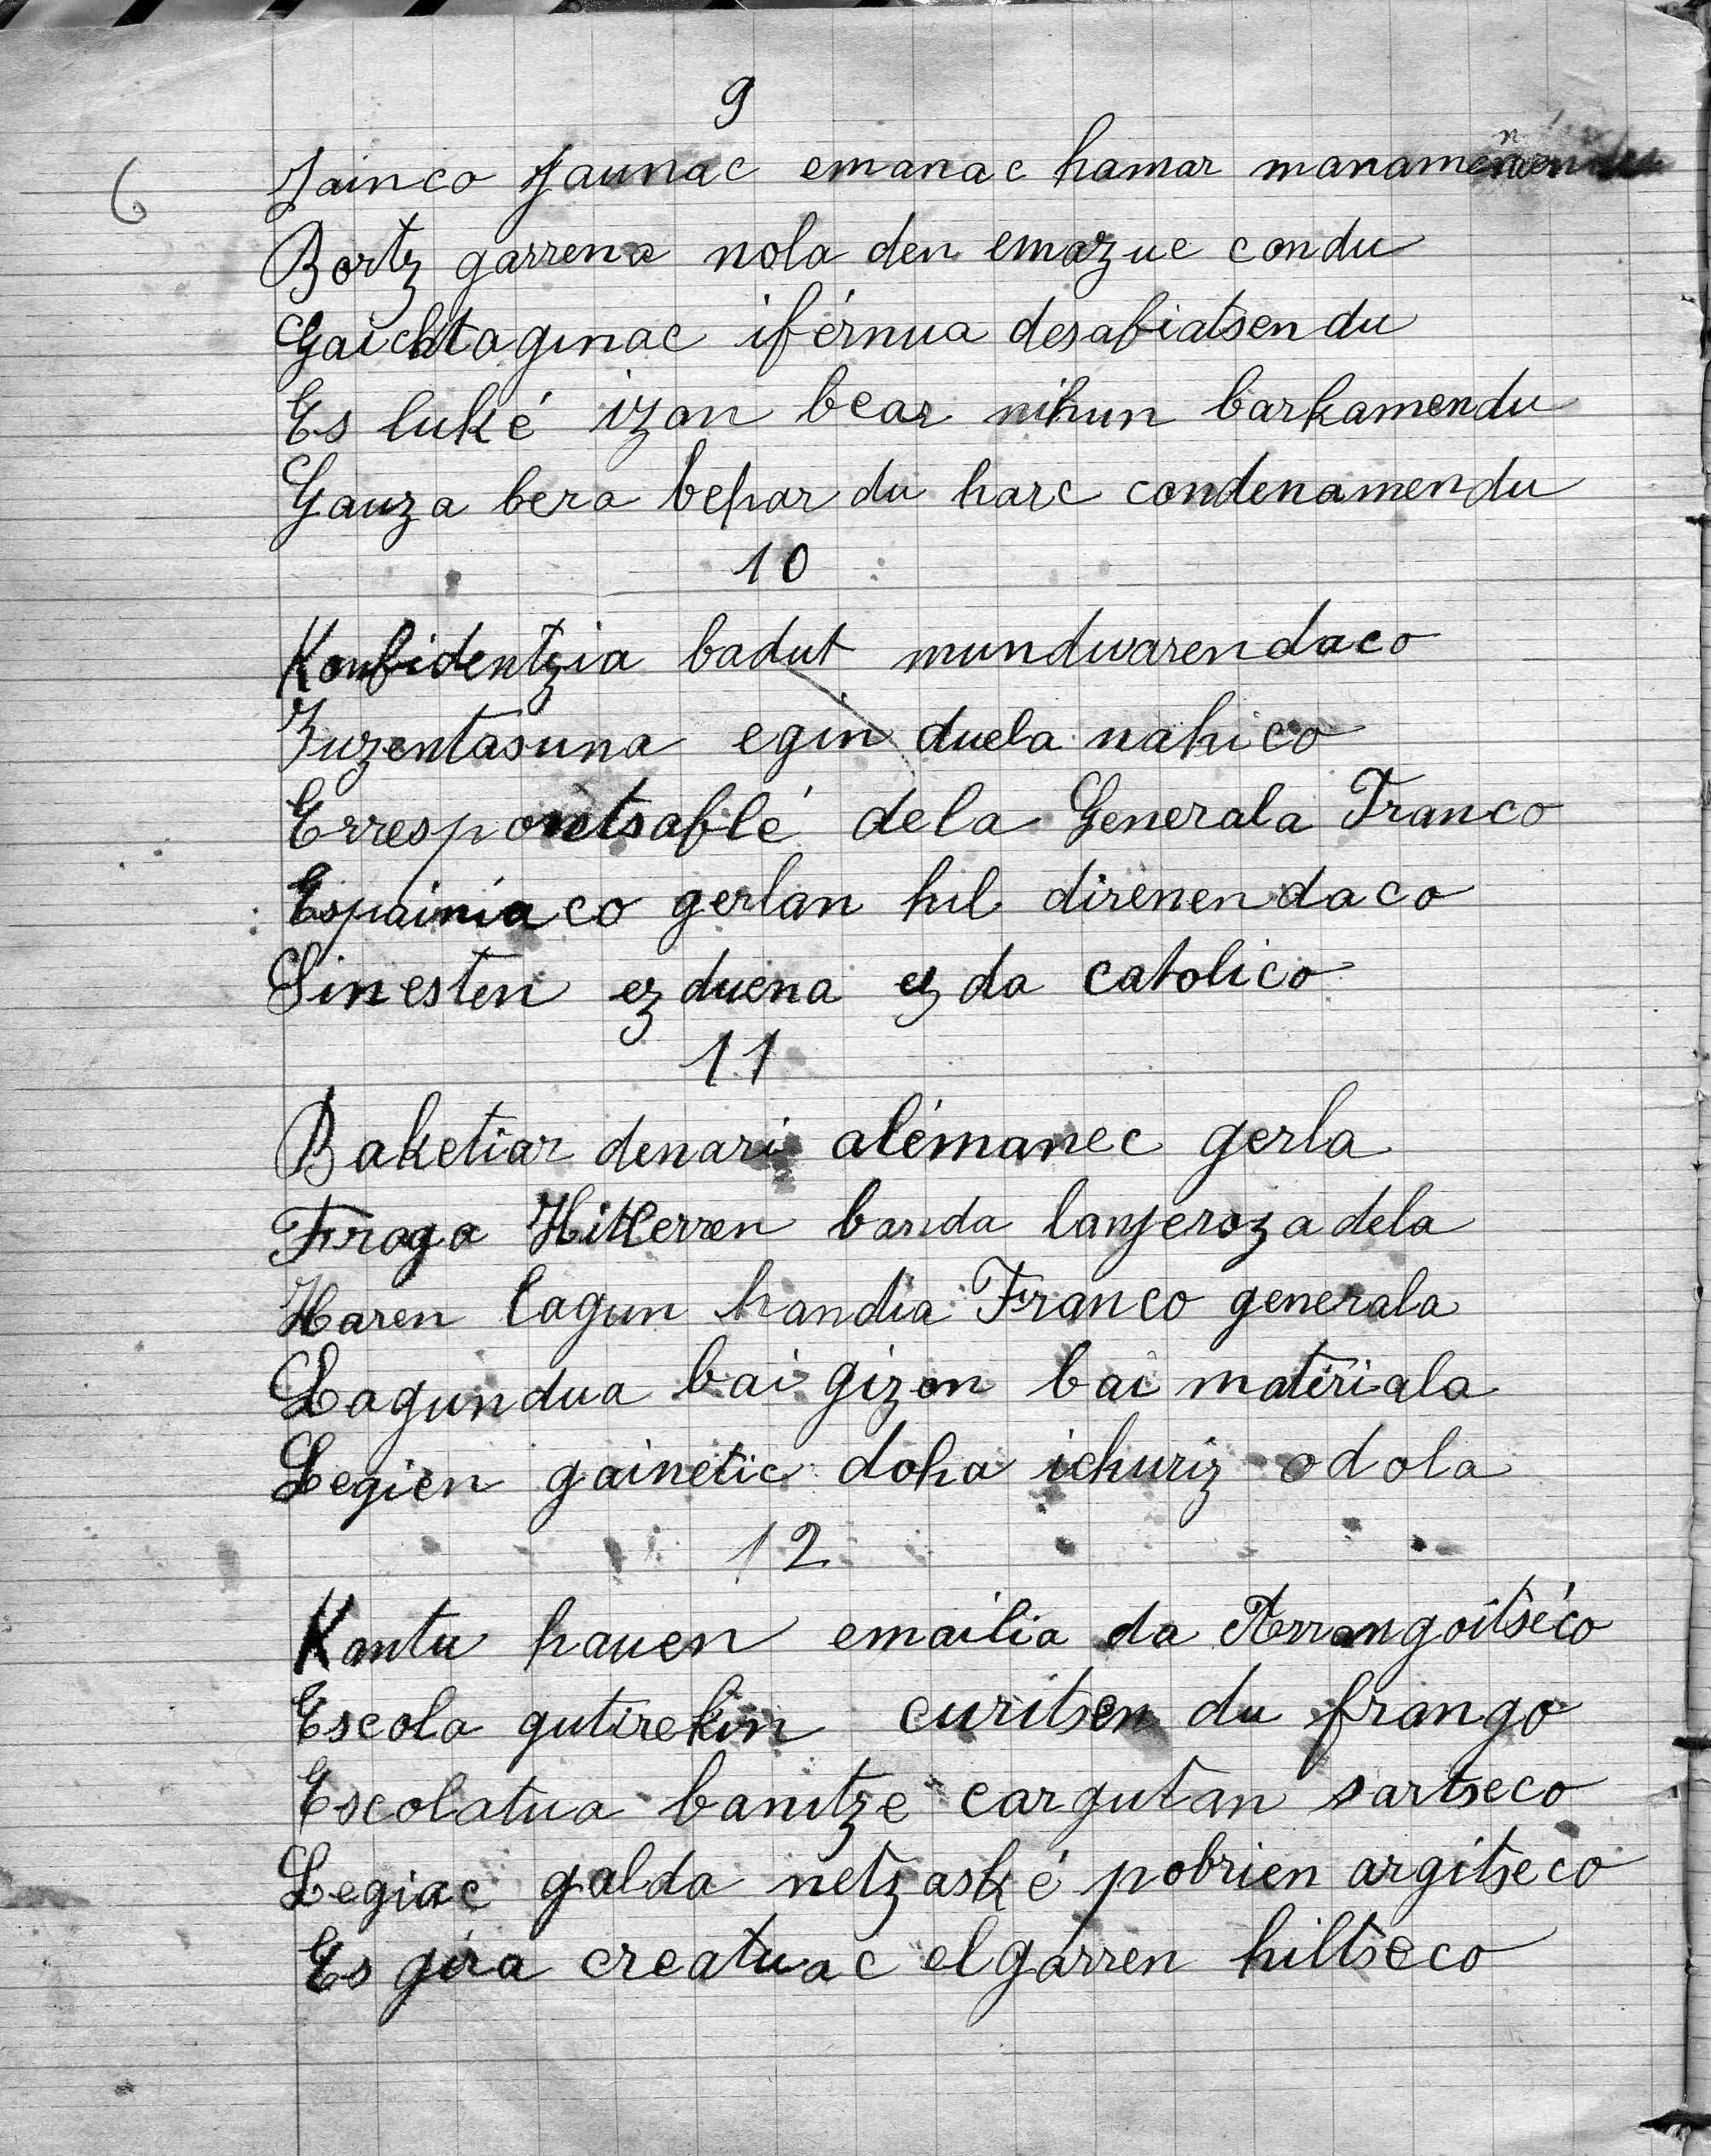 9
6
Jainco Jaunac emanac hamar manamendu
Bortz garrena nola den emazue condu
Gaichtaginac iférnua desafiatsen du
Es luké izan bear nihun barkamendu
Gauza bera behar du harc condenamendu
10
Konfidentzia badut munduarendaco
Zuzentasuna egin duela nahico
Errespontsablé dela Generala Franco
Espainiaco gerlan hil direnendaco
Sinesten ez duena ez da catolico
11
Baketiar denari alémanec gerla
Froga Hitlerren banda lanjeroza dela
Haren lagun handia Franco generala
Lagundua bai gizon bai matériala
Legien gainetic doha ichuriz odola
12
Kantu hauen emailia da Arrangoitséco
Escola gutirekin curitsen du frango
Escolatua banitze cargutan sartseco
Legiac galda netzaské pobrien argitseco
Es gira creatuac elgarren hiltseco